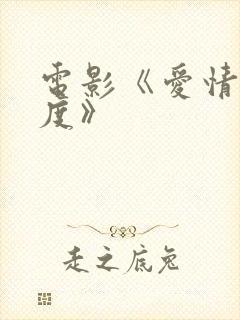 電影《愛情
度》
走之底兔